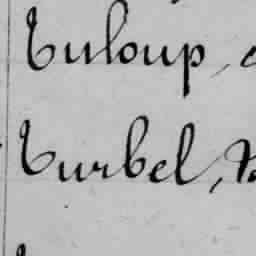 Tuloup,
Turbel,